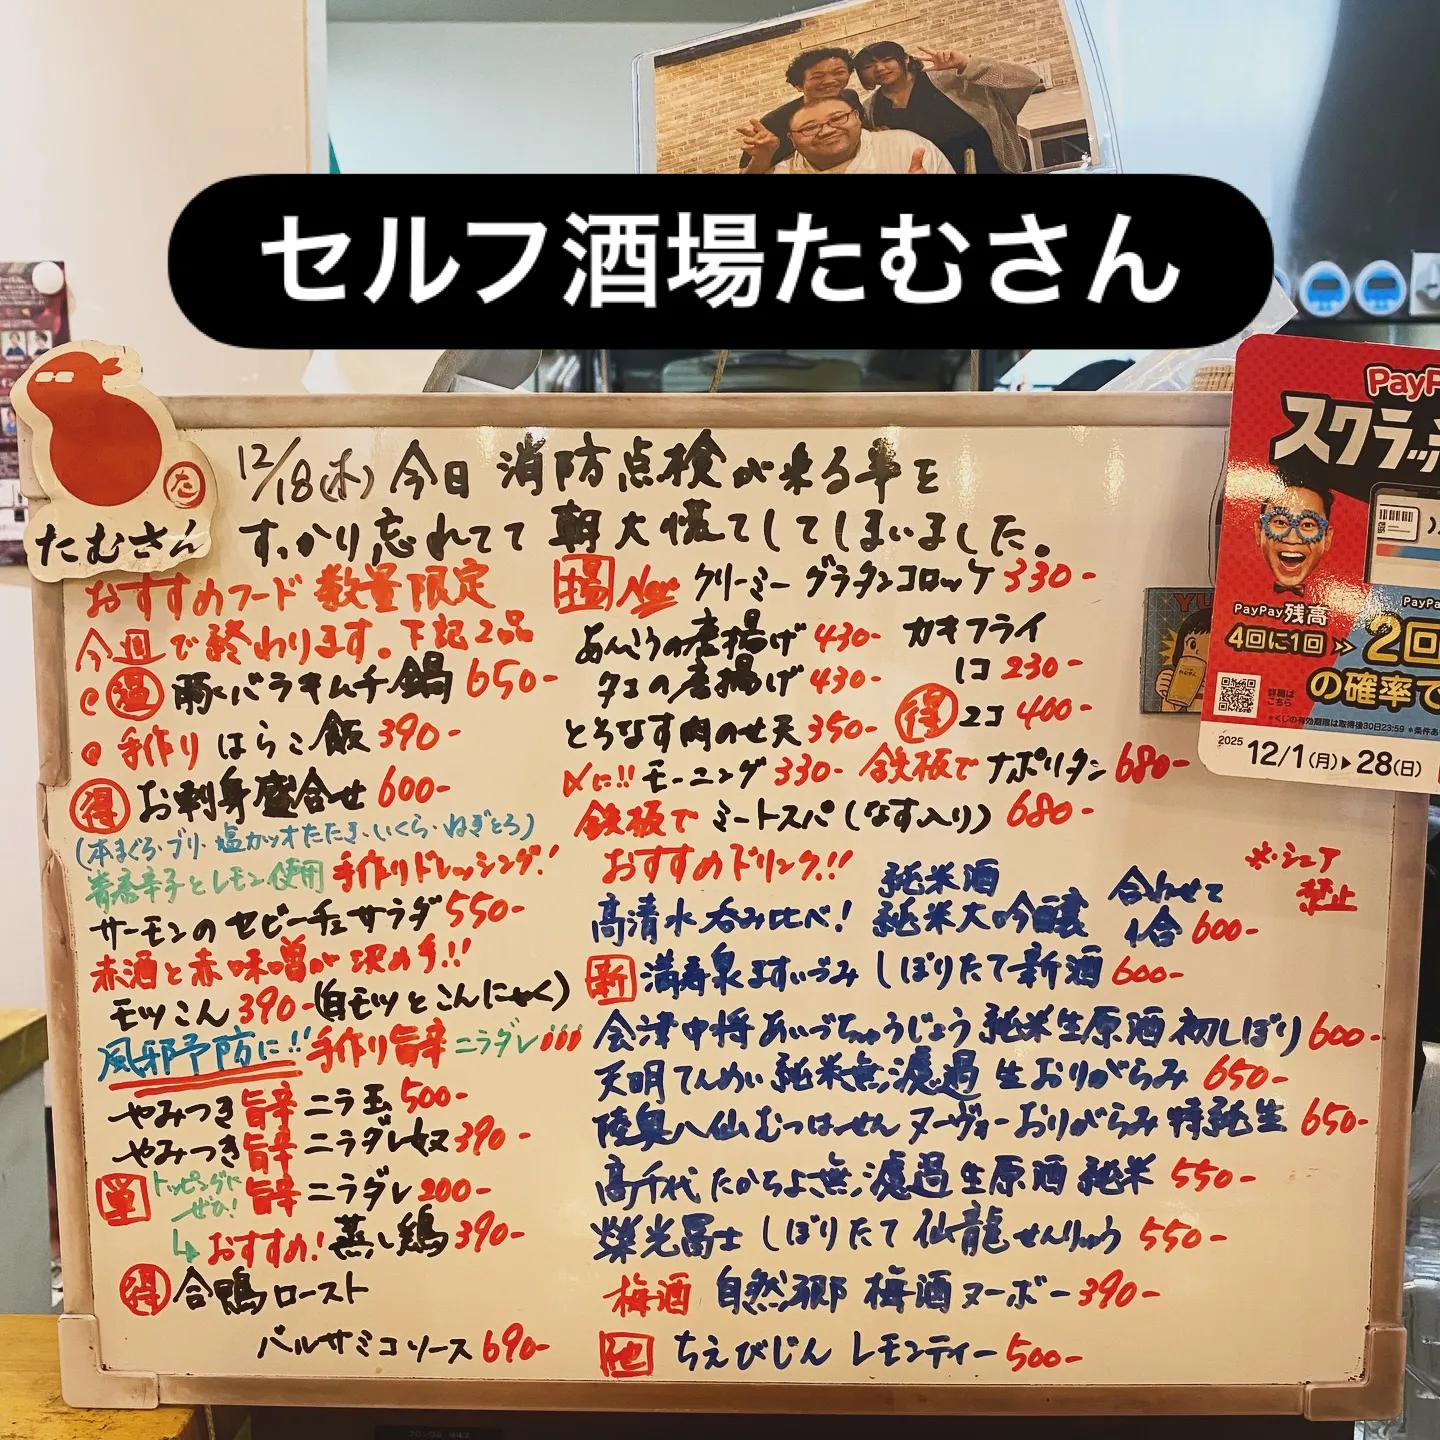 セルフ酒場たむさん
た
たむさん
12/18(木) 今日 消防点検が来る事を
すっかり忘れてて 朝大慌てしてしまいました。
おすすめフード 数量限定
今週で終わります。下記2品
@ 温 豚バラキムチ鍋 650-
@ 手作り はらこ飯 390-
得 お刺身盛合せ 600-
(本まぐろ・ブリ・塩カツオたたき・いくら・ねぎとろ)
青唐辛子とレモン使用 手作りドレッシング!
サーモンのセビーチェサラダ 550-
赤酒と赤味噌が決め手!!
モツこん 390- (白モツとこんにゃく)
風邪予防に!! 手作り旨辛 ニラダレ!!!
やみつき旨辛 ニラ玉 500-
やみつき旨辛 ニラダレ奴 390-
単 トッピングに ぜひ! 旨辛 ニラダレ 200-
おすすめ! 蒸し鶏 390-
得 合鴨ロースト
バルサミコソース 690-
揚 New クリーミーグラタンコロッケ 330-
あんこうの唐揚げ 430-
タコの唐揚げ 430-
カキフライ
1コ 230-
得 2コ 400-
とろなす肉のせ天 350-
〆に!! モーニング 330-
鉄板で ナポリタン 680-
鉄板で ミートスパ (なす入り) 680-
おすすめドリンク!!
※シェア
禁止
高清水 呑み比べ! 純米酒
純米大吟醸 合わせて
1合 600-
新 満寿泉 ますいづみ しぼりたて新酒 600-
会津中将 あいづちゅうじょう 純米生原酒 初しぼり 600-
天明 てんめい 純米無濾過 生おりがらみ 650-
陸奥八仙 むつはっせん ヌーヴォー おりがらみ 特純生 650-
高千代 たかちよ 無濾過生原酒 純米 550-
栄光冨士 しぼりたて 仙龍 せんりゅう 550-
梅酒 自然郷 梅酒ヌーボー 390-
他 ちえびじん レモンティー 500-
PayP
スクラッ
PayPay残高
4回に1回
2回
の確率で
詳細は
こちら
2025 12/1(月) 28(日)